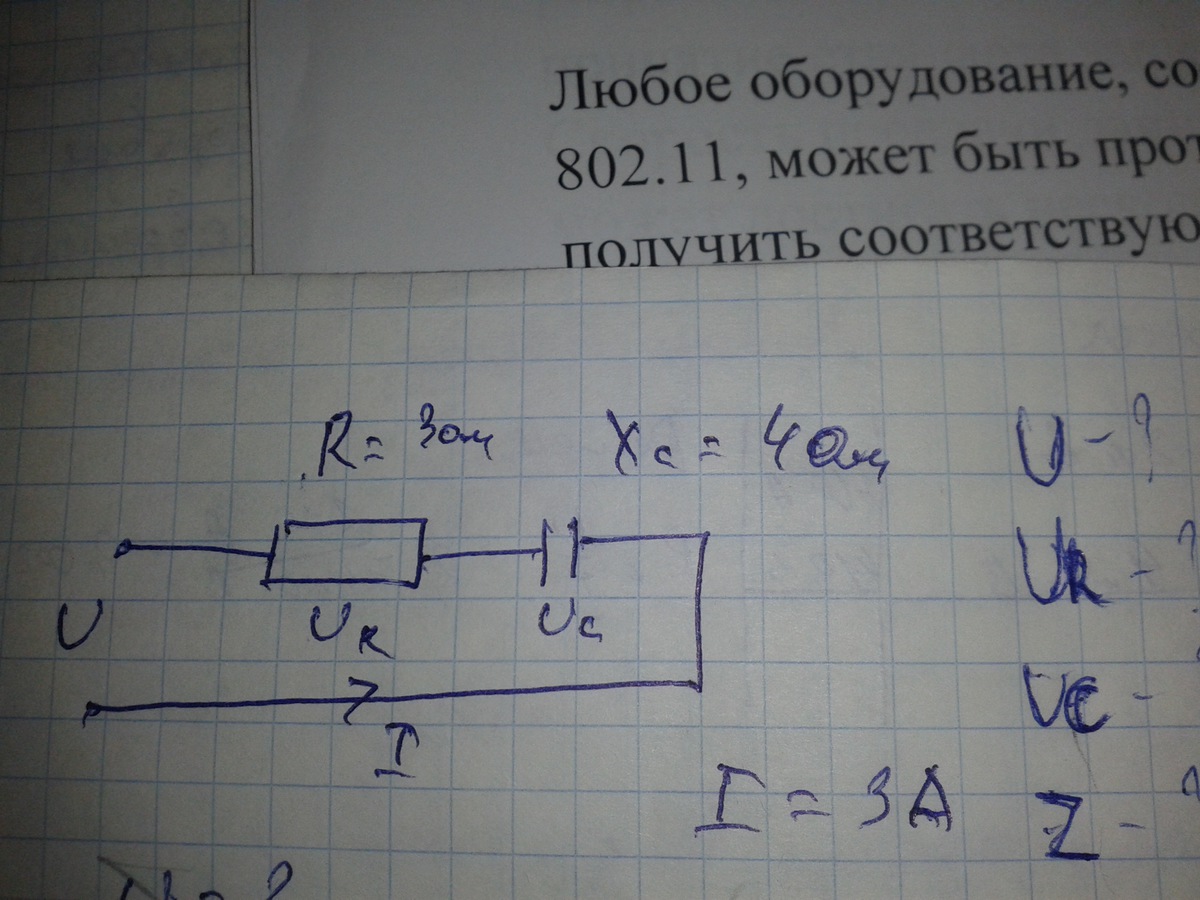 Любое оборудование, со
802.11, может быть прот
получить соответствую
R = 3ом Xc = 4 Ом U - ?
UR - ?
U UR Uc
Uc -
I
I = 3A Z - ?